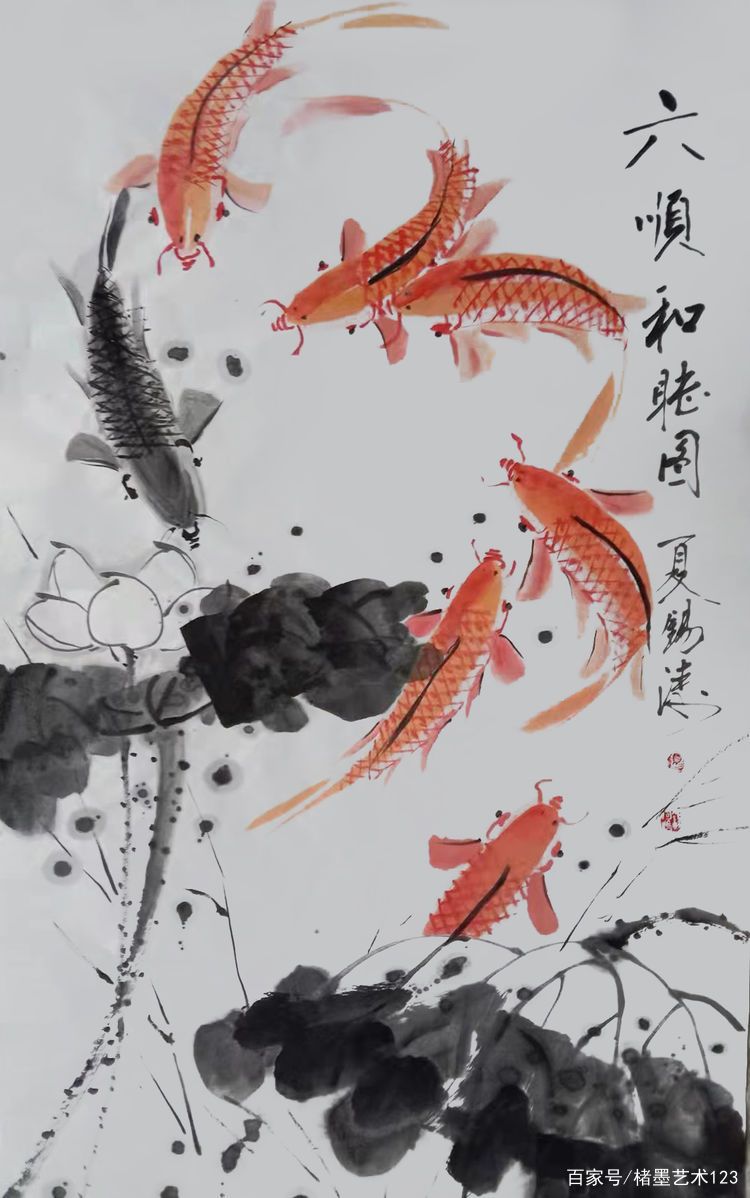 六順和睦图
夏锡涛
百家号/楮墨艺术123